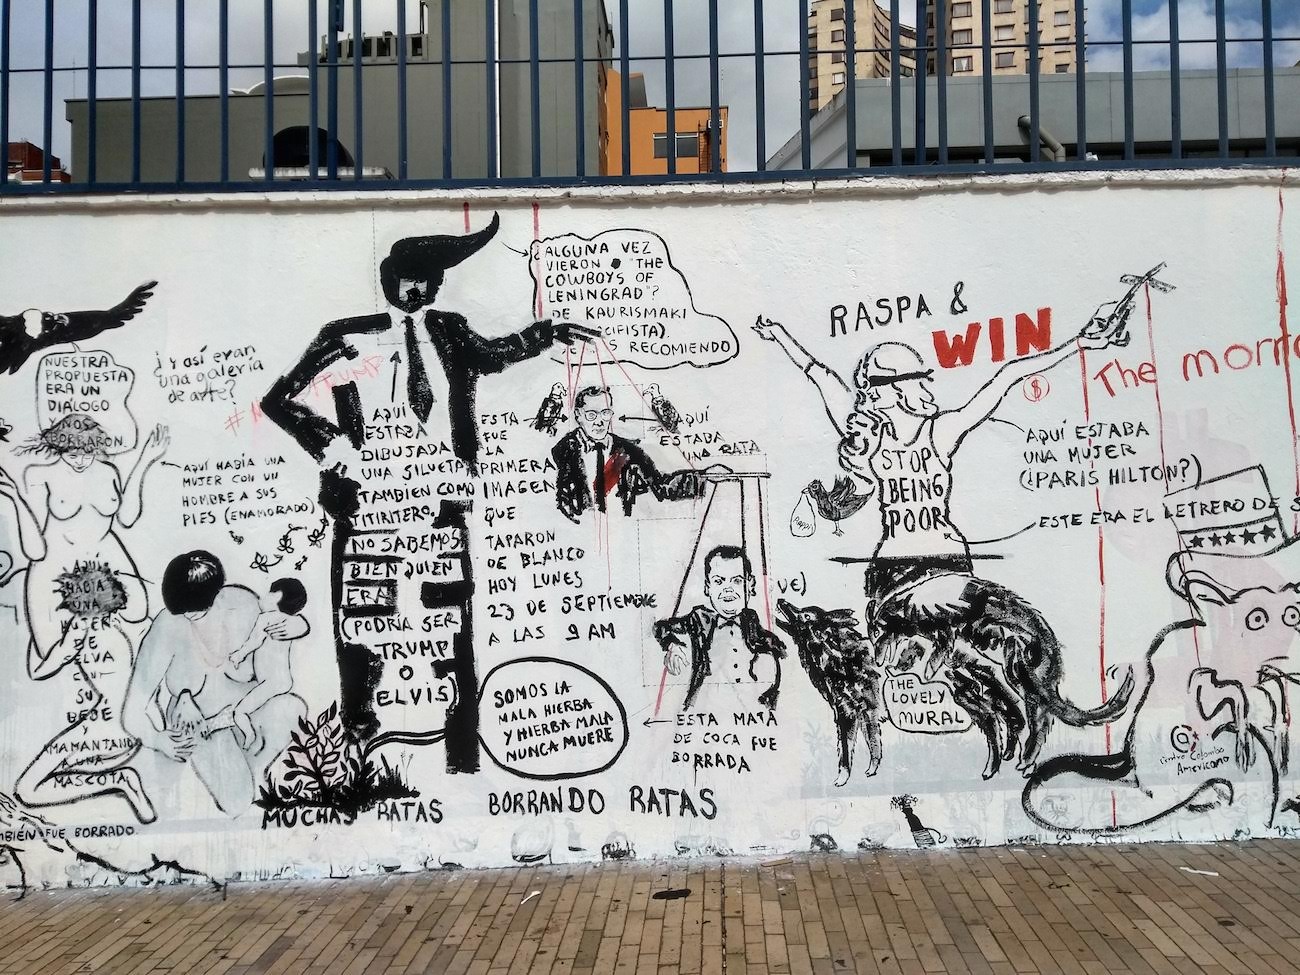 NUESTRA
PROPUESTA
ERA UN
DIÁLOGO
Y NOS
BORRARON
¿y así eran
una galería
de arte?
AQUÍ HABÍA UNA
MUJER CON UN
HOMBRE A SUS
PIES (ENAMORADO)
AQUÍ
HABÍA
UNA
MUJER
DE
SELVA
CON
SU
BEBÉ
Y
AMAMANTANDO
A UNA
MASCOTA
FUE BORRADO
TRUMP
AQUÍ
ESTABA
DIBUJADA
UNA SILUETA
TAMBIEN COMO
TITIRITERO.
NO SABEMOS
BIEN QUIEN
ERA
(PODRÍA SER
TRUMP
O
ELVIS)
¿ALGUNA VEZ
VIERON "THE
COWBOYS OF
LENINGRAD"?
DE KAURISMAKI
RECOMIENDO
ESTA
FUE
LA
PRIMERA
IMAGEN
QUE
TAPARON
DE BLANCO
HOY LUNES
23 DE SEPTIEMBRE
A LAS 9 AM
AQUÍ
ESTABA
UNA RATA
SOMOS LA
MALA HIERBA
Y HIERBA MALA
NUNCA MUERE
ESTA MATA
DE COCA FUE
BORRADA
MUCHAS RATAS BORRANDO RATAS
RASPA &
WIN
$
The
STOP
BEING
POOR
AQUÍ ESTABA
UNA MUJER
(¿PARIS HILTON?)
ESTE ERA EL LETRERO DE
THE
LOVELY
MURAL
@
Centro Colombo
Americano